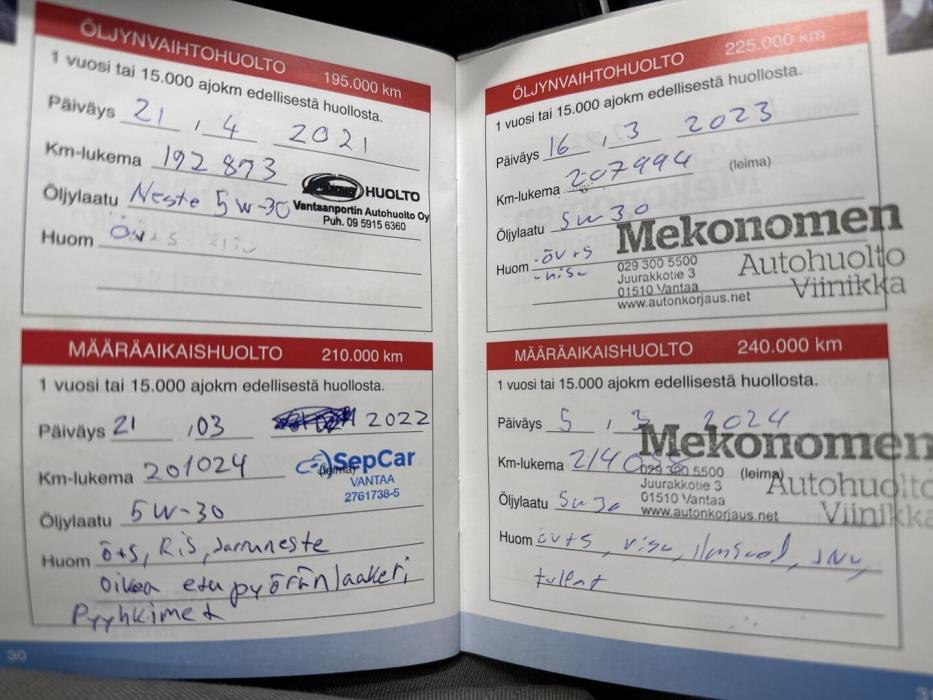 ÖLJYNVAIHTOHUOLTO 195.000 km
1 vuosi tai 15.000 ajokm edellisestä huollosta.
Päiväys 21 , 4 2021
Km-lukema 192 873
Öljylaatu Neste 5W-30
HUOLTO
Vantaanportin Autohuolto Oy
Puh. 09 5915 6360
Huom
MÄÄRÄAIKAISHUOLTO 210.000 km
1 vuosi tai 15.000 ajokm edellisestä huollosta.
Päiväys 21 ,03 2022
Km-lukema 201024
(leima)
SepCar
VANTAA
2761738-5
Öljylaatu 5W-30
Huom ö+s, Ris, Jarruneste
Oikea etupyöränlaakeri
Pyyhkimet
30
ÖLJYNVAIHTOHUOLTO 225.000 km
1 vuosi tai 15.000 ajokm edellisestä huollosta.
Päiväys 16 , 3 2023
Km-lukema 207994 (leima)
Öljylaatu 5w30
Huom -öv+s
Mekonomen
Autohuolto
Viinikka
029 300 5500
Juurakkotie 3
01510 Vantaa
www.autonkorjaus.net
MÄÄRÄAIKAISHUOLTO 240.000 km
1 vuosi tai 15.000 ajokm edellisestä huollosta.
Päiväys 5 , 3 2024
Km-lukema (leima)
Öljylaatu 5w30
Mekonomen
Autohuolto
Viinikka
029 300 5500
Juurakkotie 3
01510 Vantaa
www.autonkorjaus.net
Huom öv+s,